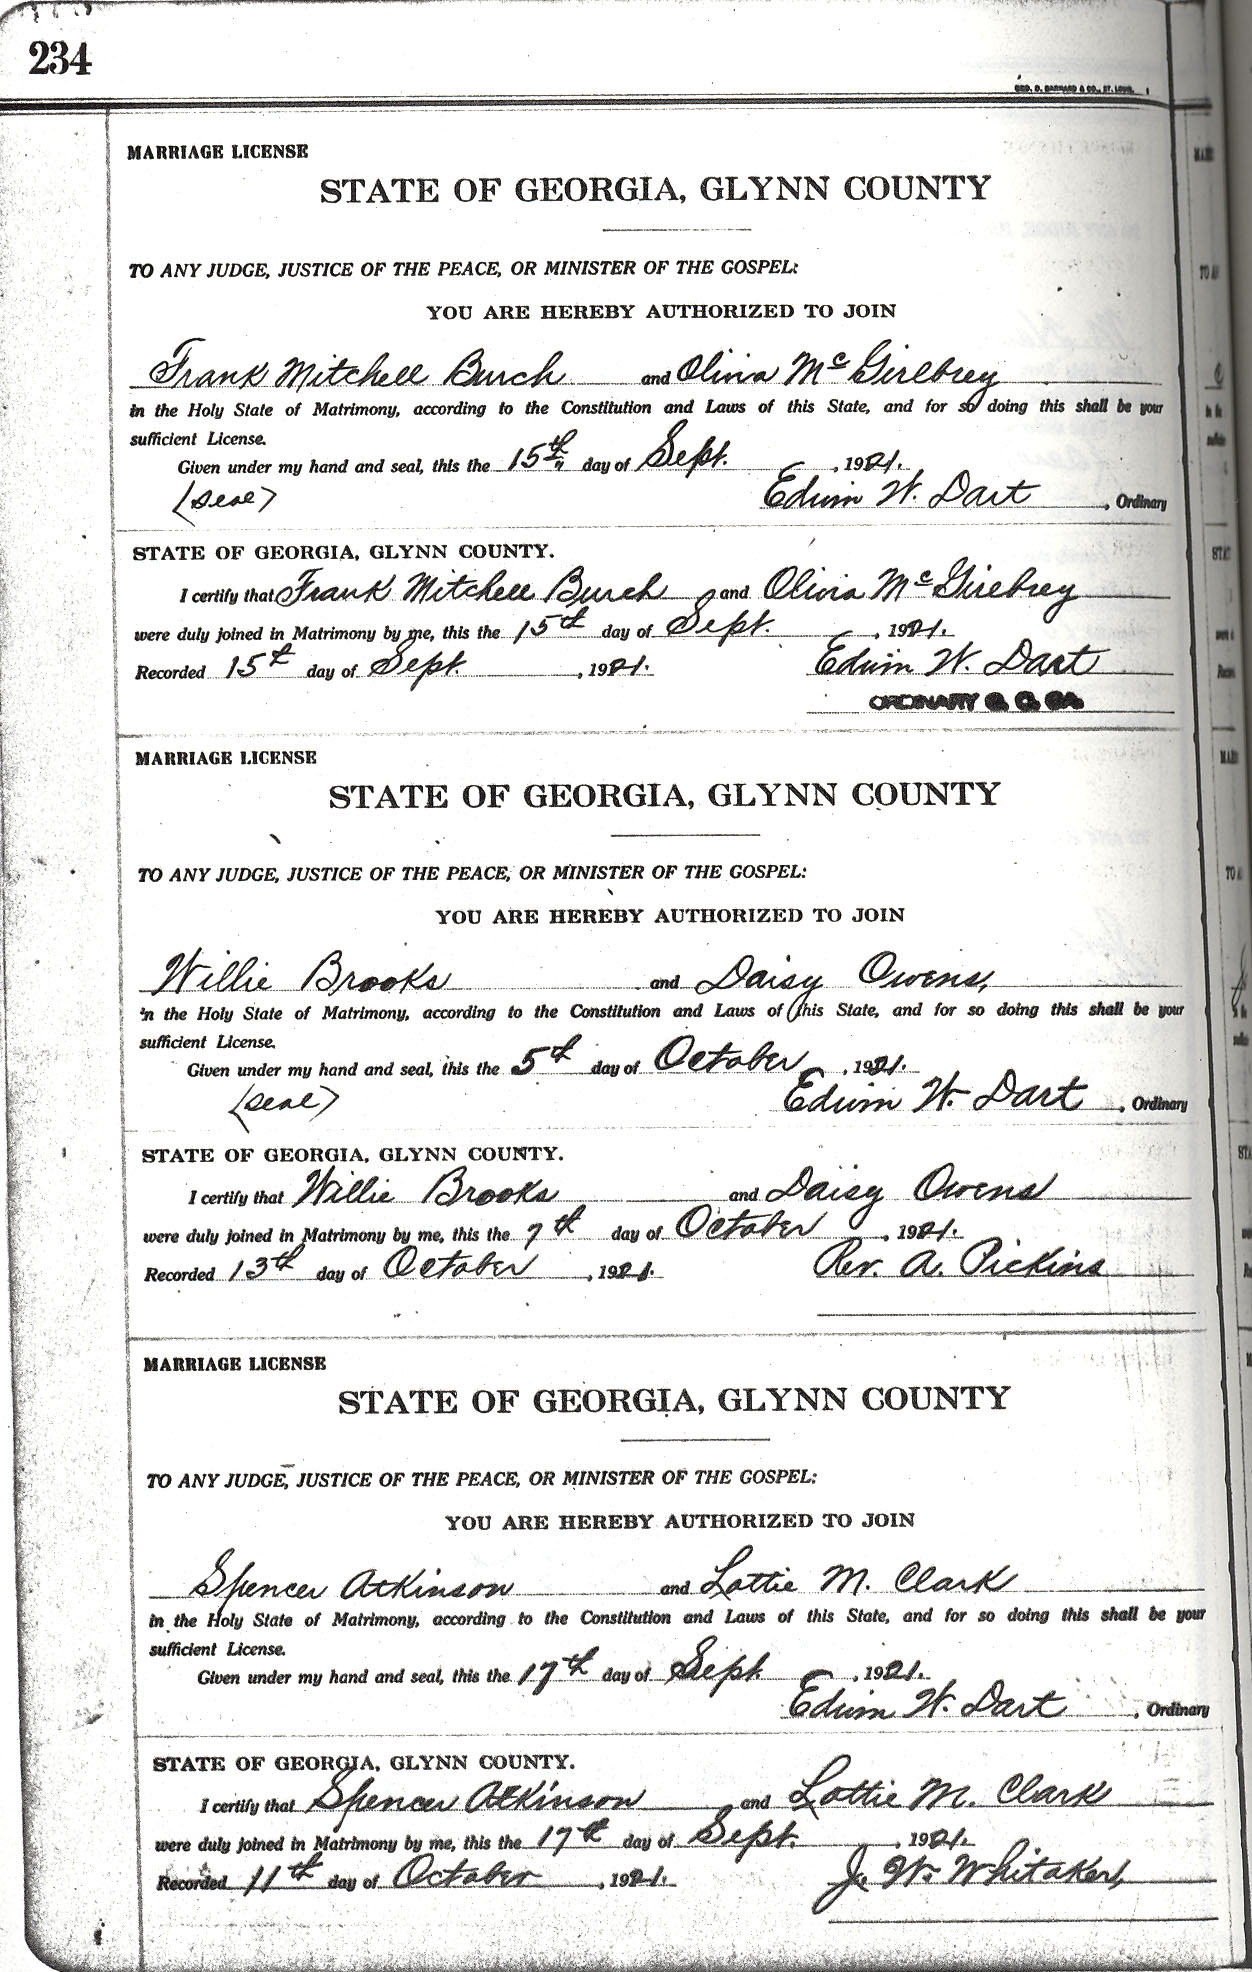 234
GEO. D. BARNARD & CO., ST. LOUIS.
MARRIAGE LICENSE
STATE OF GEORGIA, GLYNN COUNTY
TO ANY JUDGE, JUSTICE OF THE PEACE, OR MINISTER OF THE GOSPEL:
YOU ARE HEREBY AUTHORIZED TO JOIN
Frank Mitchell Burch and Olivia McGirebrey
in the Holy State of Matrimony, according to the Constitution and Laws of this State, and for so doing this shall be your
sufficient License.
Given under my hand and seal, this the 15th day of Sept. , 1921.
(Seal) Edwin W. Dart , Ordinary
STATE OF GEORGIA, GLYNN COUNTY.
I certify that Frank Mitchell Burch and Olivia McGirebrey
were duly joined in Matrimony by me, this the 15th day of Sept. , 1921.
Recorded 15th day of Sept. , 1921. Edwin W. Dart
ORDINARY G. C. GA.
MARRIAGE LICENSE
STATE OF GEORGIA, GLYNN COUNTY
TO ANY JUDGE, JUSTICE OF THE PEACE, OR MINISTER OF THE GOSPEL:
YOU ARE HEREBY AUTHORIZED TO JOIN
Willie Brooks and Daisy Owens,
in the Holy State of Matrimony, according to the Constitution and Laws of this State, and for so doing this shall be your
sufficient License.
Given under my hand and seal, this the 5th day of October , 1921.
(Seal) Edwin W. Dart , Ordinary
STATE OF GEORGIA, GLYNN COUNTY.
I certify that Willie Brooks and Daisy Owens
were duly joined in Matrimony by me, this the 7th day of October , 1921.
Recorded 13th day of October , 1921. Rev. A. Pickins
MARRIAGE LICENSE
STATE OF GEORGIA, GLYNN COUNTY
TO ANY JUDGE, JUSTICE OF THE PEACE, OR MINISTER OF THE GOSPEL:
YOU ARE HEREBY AUTHORIZED TO JOIN
Spencer Atkinson and Lottie M. Clark
in the Holy State of Matrimony, according to the Constitution and Laws of this State, and for so doing this shall be your
sufficient License.
Given under my hand and seal, this the 17th day of Sept. , 1921.
Edwin W. Dart , Ordinary
STATE OF GEORGIA, GLYNN COUNTY.
I certify that Spencer Atkinson and Lottie M. Clark
were duly joined in Matrimony by me, this the 17th day of Sept. , 1921.
Recorded 11th day of October , 1921. J. W. Whitaker,